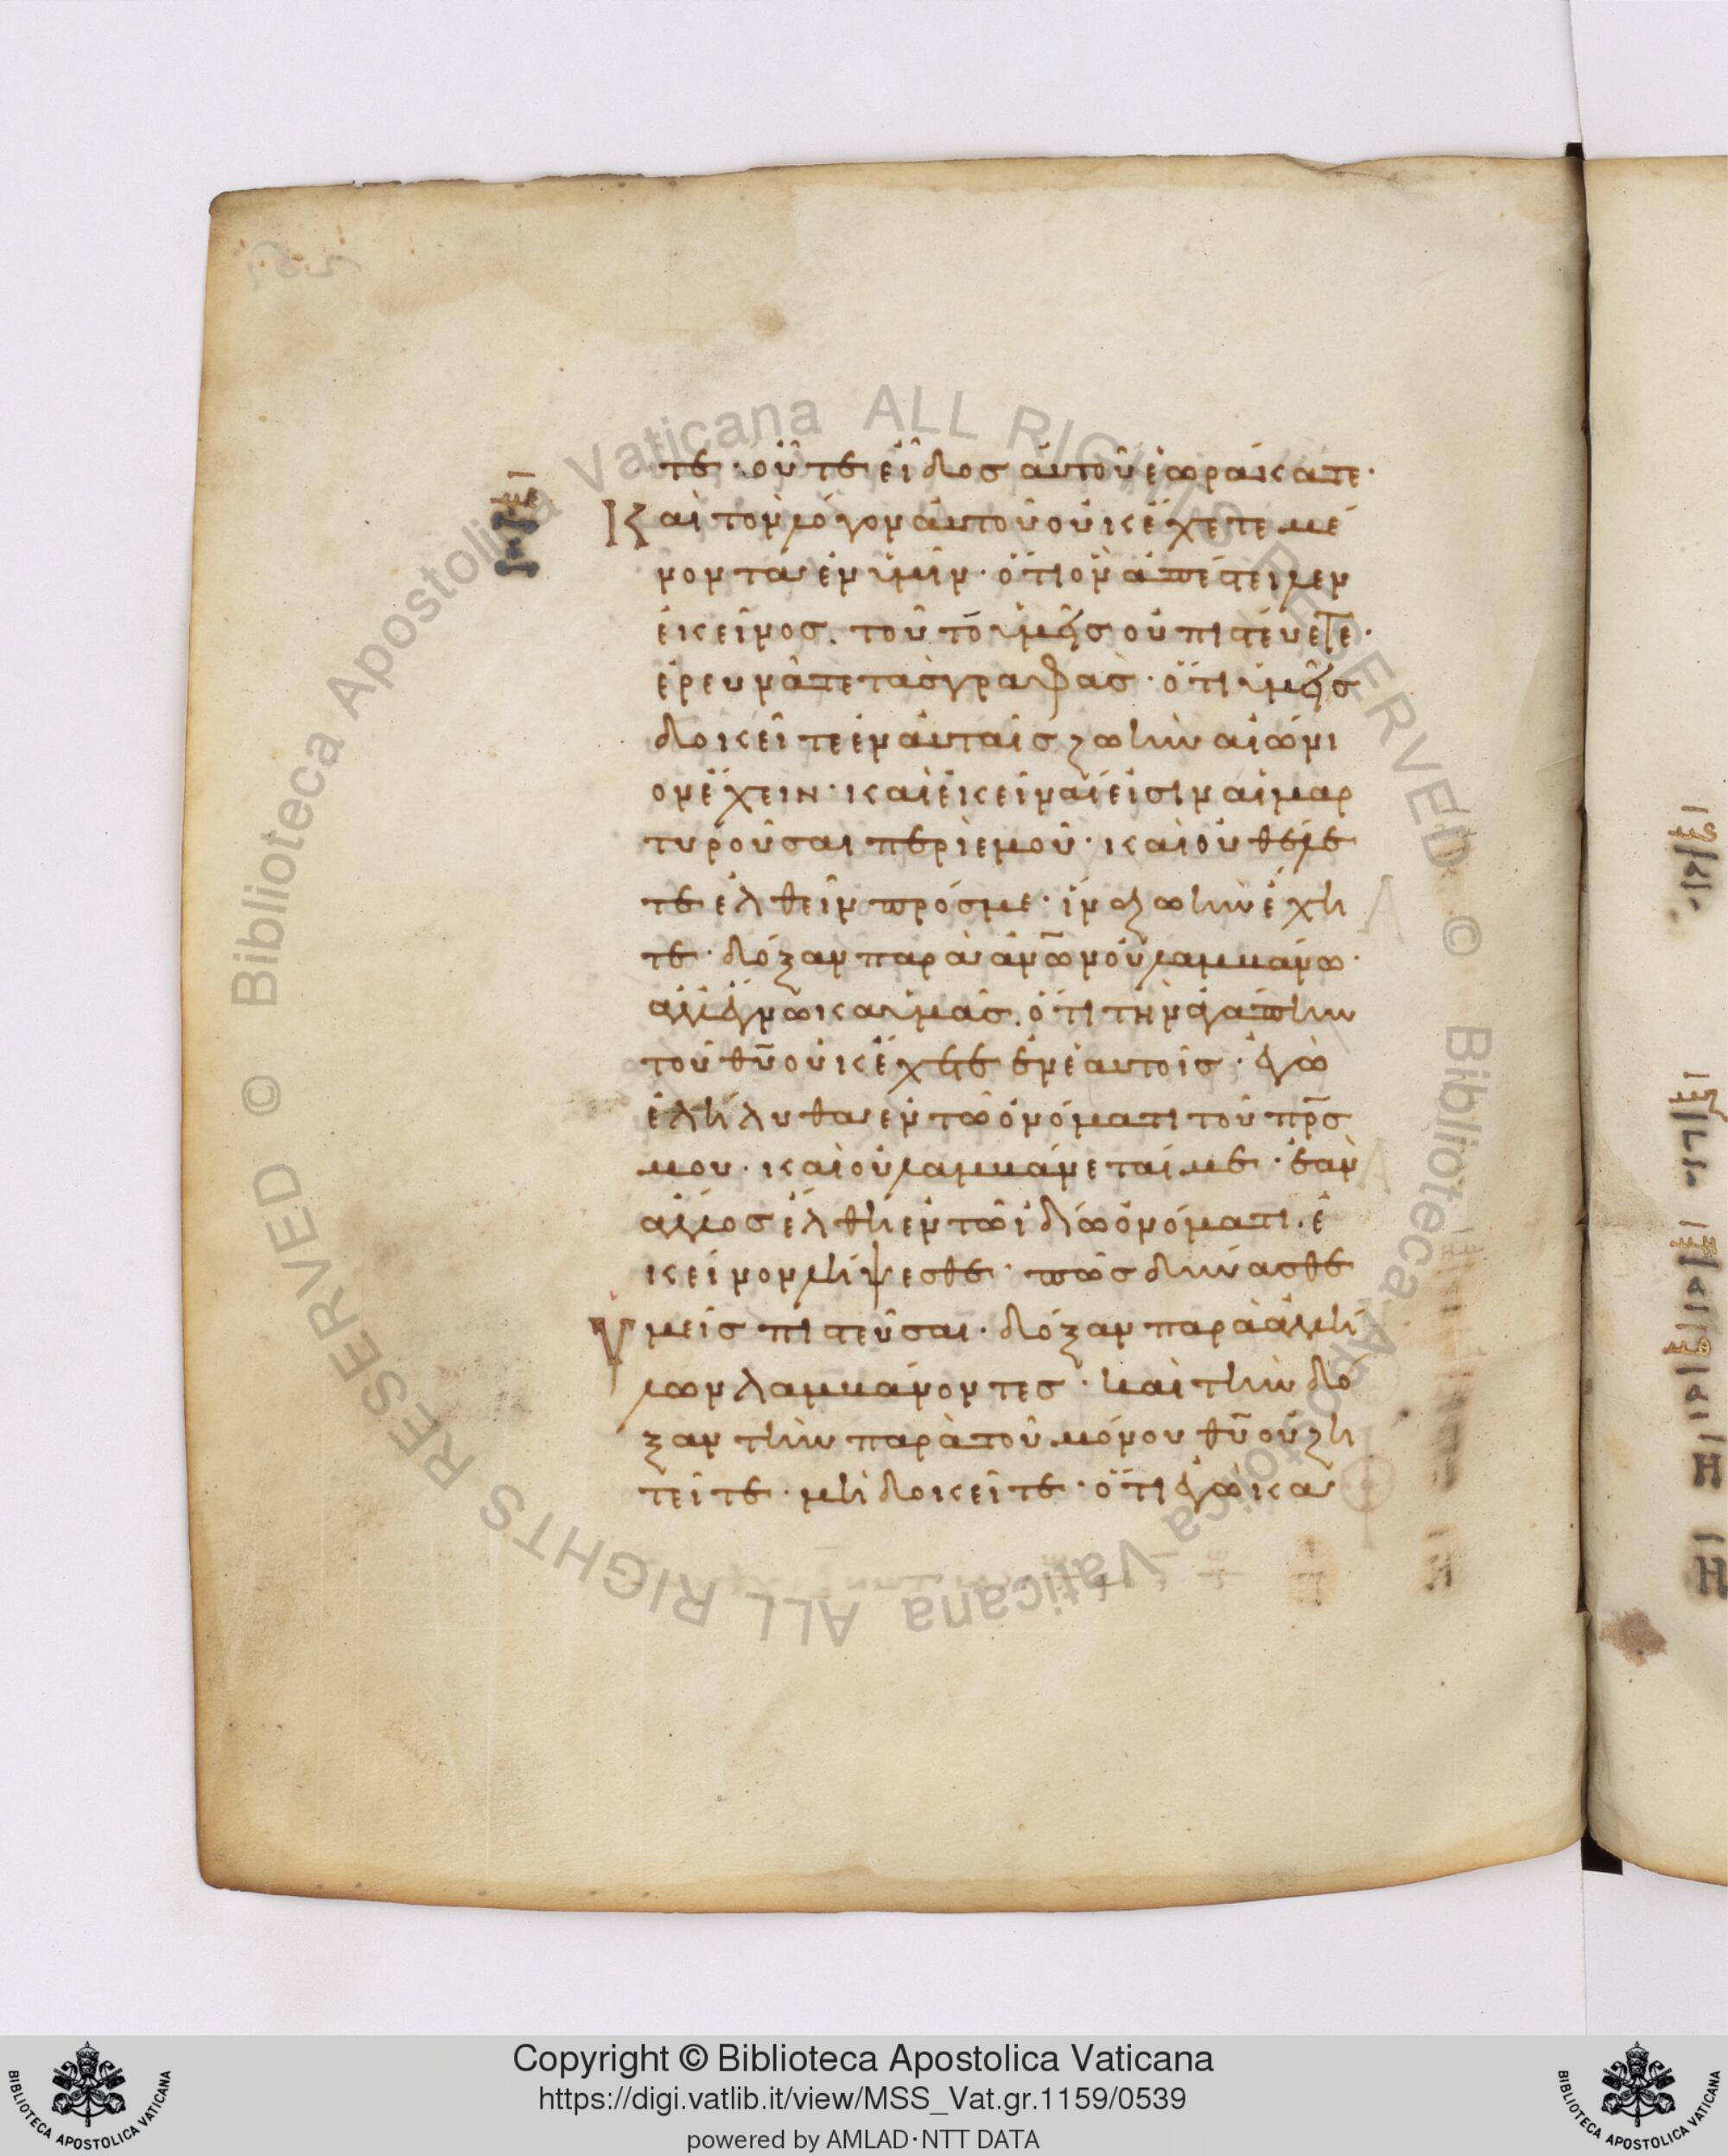 τε· οὔτε εἶδος αὐτοῦ ἑωράκατε·
Καὶ τὸν λόγον αὐτοῦ οὐκ ἔχετε μέ
νοντα ἐν ὑμῖν· ὅτι ὃν ἀπέστειλεν
ἐκεῖνος. τούτω ὑμεῖς οὐ πιστεύετε·
ἐρευνᾶτε τὰς γραφὰς· ὅτι ὑμεῖς
δοκεῖτε ἐν αὐταῖς ζωὴν αἰώνι
ον ἔχειν· καὶ ἐκεῖναι εἰσὶν αἱ μαρ
τυροῦσαι περὶ ἐμοῦ· καὶ οὐ θέλε
τε ἐλθεῖν πρός με· ἵνα ζωὴν ἔχη
τε· δόξαν παρὰ ἀνων οὐ λαμβάνω·
ἀλλ' ἔγνωκα ὑμᾶς. ὅτι τὴν ἀγάπην
τοῦ θυ οὐκ ἔχετε ἐν ἑαυτοῖς· ἐγὼ
ἐλήλυθα ἐν τῶ ὀνόματι τοῦ πρς
μου· καὶ οὐ λαμβάνεταί με· ἐὰν
ἄλλος ἔλθη ἐν τῶ ἰδίω ὀνόματι. ἐ
κεῖνον λήψεσθε· πῶς δύνασθε
Ὑμεῖς πιστεῦσαι· δόξαν παρὰ ἀλλή
λων λαμβάνοντες· καὶ τὴν δό
ξαν τὴν παρὰ τοῦ μόνου θυ οὐ ζη
τεῖτε· μὴ δοκεῖτε· ὅτι ἐγὼ κα
Copyright © Biblioteca Apostolica Vaticana
https://digi.vatlib.it/view/MSS_Vat.gr.1159/0539
powered by AMLAD·NTT DATA
BIBLIOTECA APOSTOLICA VATICANA
BIBLIOTECA APOSTOLICA VATICANA
Biblioteca Apostolica Vaticana ALL RIGHTS RESERVED ©
Biblioteca Apostolica Vaticana ALL RIGHTS RESERVED ©